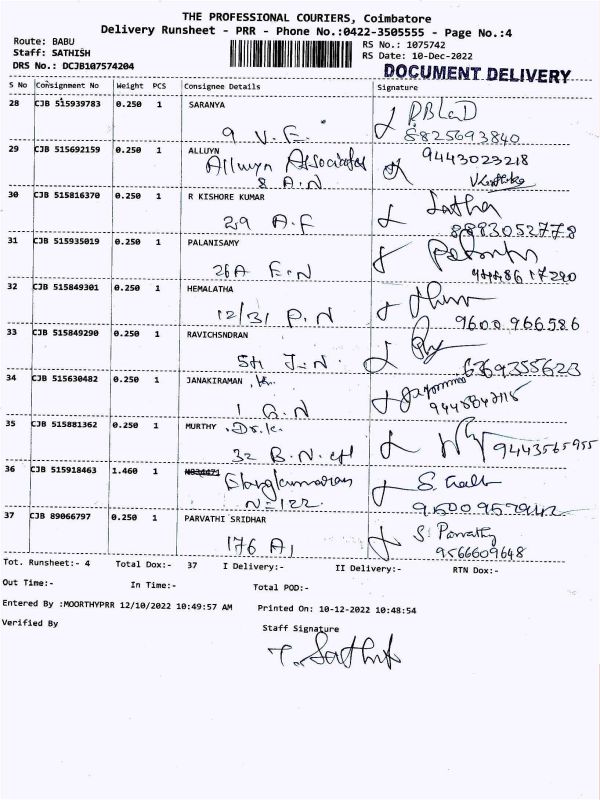 THE PROFESSIONAL COURIERS, Coimbatore
Delivery Runsheet - PRR - Phone No.:0422-3505555 - Page No.:4
Route: BABU
RS No.: 1075742
Staff: SATHISH
RS Date: 10-Dec-2022
DRS No.: DCJB107574204
DOCUMENT DELIVERY
S No Consignment No Weight PCS Consignee Details Signature
28 CJB 515939783 0.250 1 SARANYA
9 V.E.
8825693840
29 CJB 515692159 0.250 1 ALLUYN 9443023218
Alluyn Associates
8 A.N
30 CJB 515816370 0.250 1 R KISHORE KUMAR Latha
29 A.F 8883052778
31 CJB 515935019 0.250 1 PALANISAMY
26A E.N
32 CJB 515849301 0.250 1 HEMALATHA
12/31 P.N 9600966586
33 CJB 515849290 0.250 1 RAVICHSNDRAN
5H J.N. 6369355623
34 CJB 515630482 0.250 1 JANAKIRAMAN
1 G.N
35 CJB 515881362 0.250 1 MURTHY .Dr.K.
32 B.N. 9443565955
36 CJB 515918463 1.460 1
N=122
37 CJB 89066797 0.250 1 PARVATHI SRIDHAR S. Parvathy
176 A1 9566609648
Tot. Runsheet:- 4 Total Dox:- 37 I Delivery:- II Delivery:- RTN Dox:-
Out Time:- In Time:- Total POD:-
Entered By :MOORTHYPRR 12/10/2022 10:49:57 AM Printed On: 10-12-2022 10:48:54
Verified By Staff Signature
T. Sathish